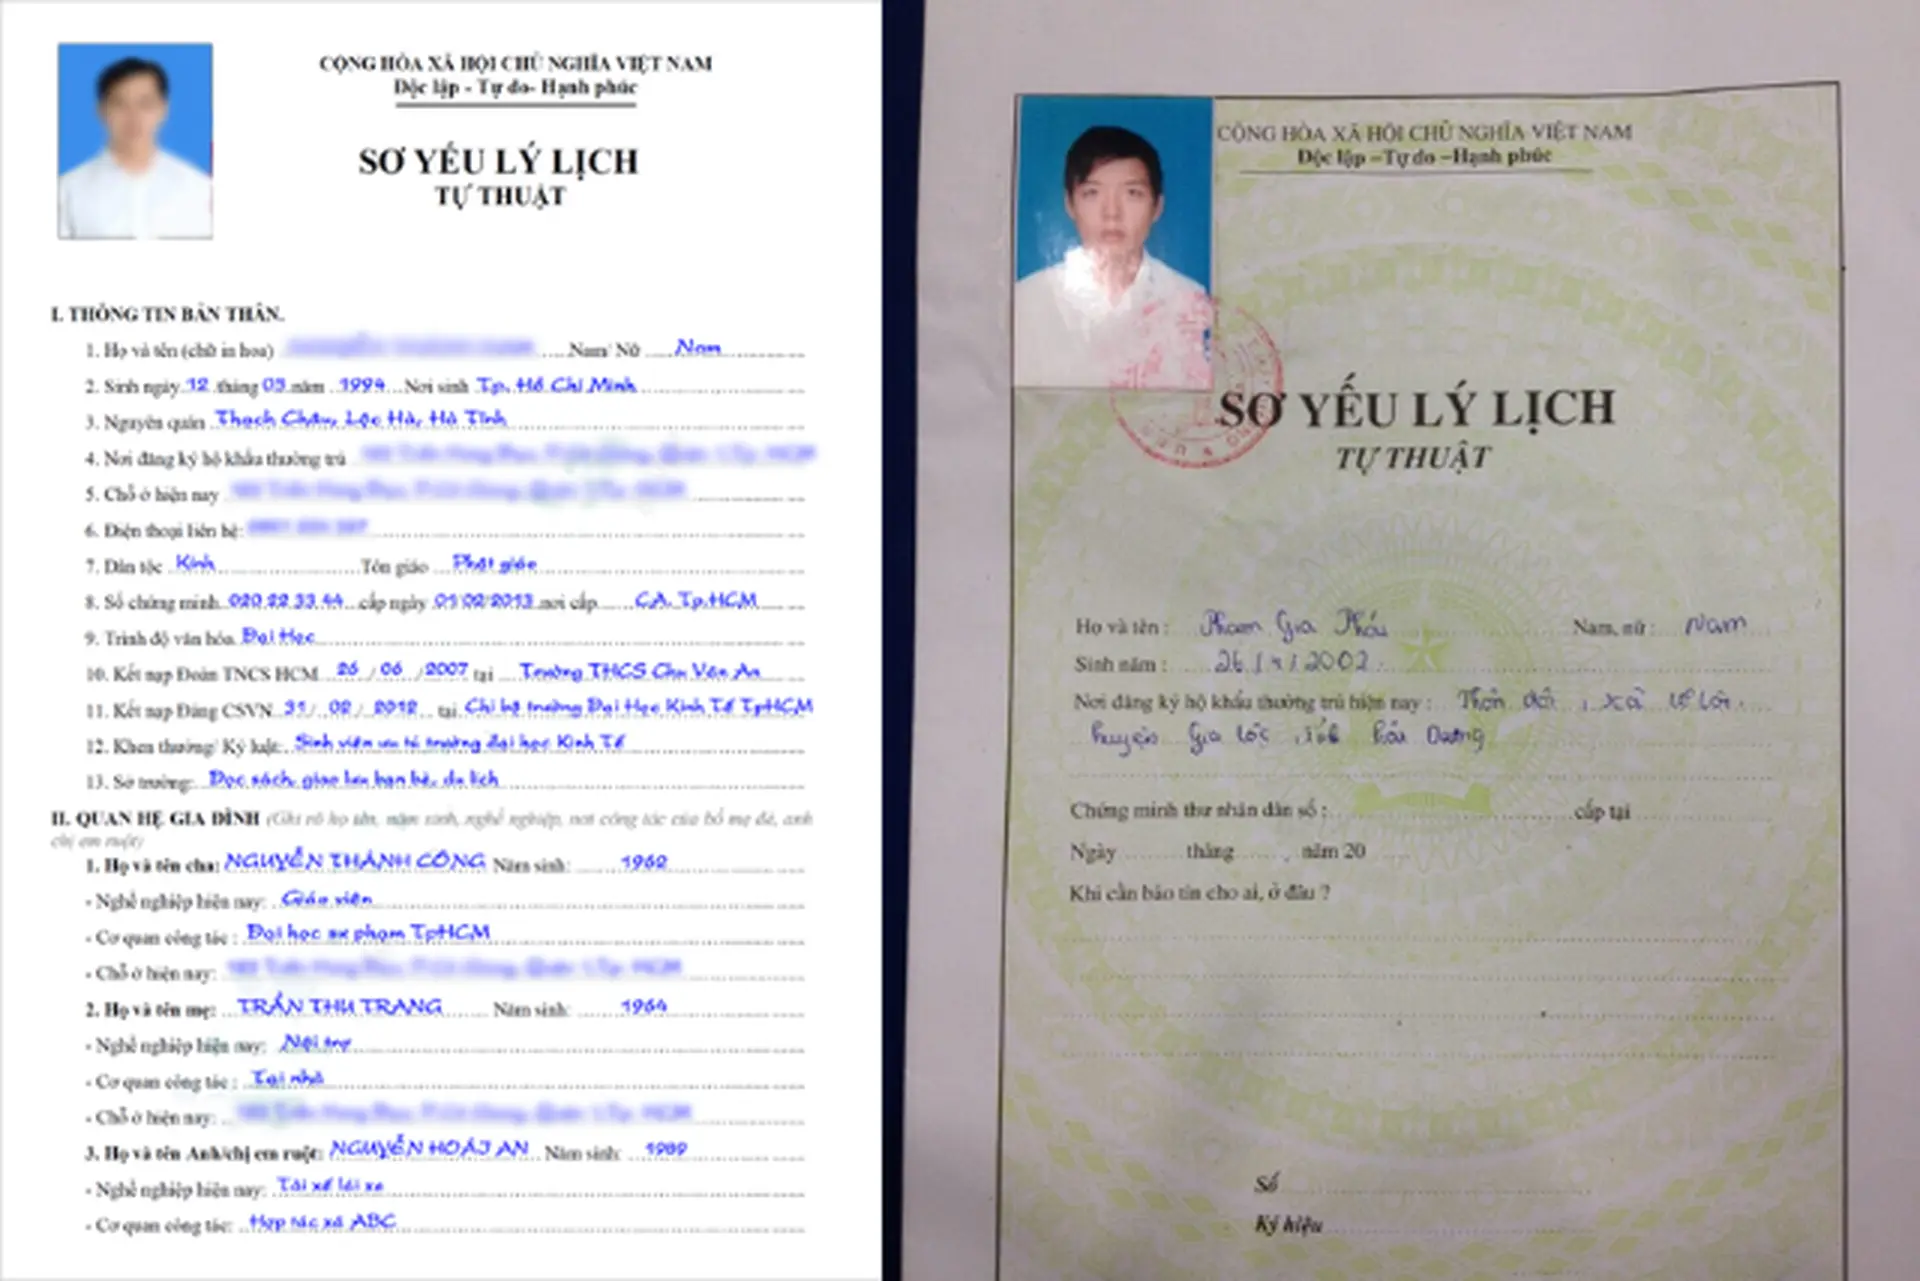 CỘNG HÒA XÃ HỘI CHỦ NGHĨA VIỆT NAM
Độc lập - Tự do- Hạnh phúc
SƠ YẾU LÝ LỊCH
TỰ THUẬT
I. THÔNG TIN BẢN THÂN.
1. Họ và tên (chữ in hoa) Nam/ Nữ Nam
2. Sinh ngày 12 tháng 03 năm 1994 Nơi sinh Tp. Hồ Chí Minh
3. Nguyên quán Thạch Châu, Lộc Hà, Hà Tĩnh
4. Nơi đăng ký hộ khẩu thường trú
5. Chỗ ở hiện nay
6. Điện thoại liên hệ:
7. Dân tộc Kinh Tôn giáo Phật giáo
8. Số chứng minh 020 22 33 44 cấp ngày 01/02/2013 nơi cấp C.A. Tp.HCM
9. Trình độ văn hóa Đại Học
10. Kết nạp Đoàn TNCS HCM 26 / 06 / 2007 tại Trường THCS Chu Văn An
11. Kết nạp Đảng CSVN 31 / 02 / 2012 tại Chi bộ trường Đại Học Kinh Tế TpHCM
12. Khen thưởng/ Kỷ luật: Sinh viên ưu tú trường đại học Kinh Tế
13. Sở trường: Đọc sách, giao lưu bạn bè, du lịch
II. QUAN HỆ GIA ĐÌNH (Ghi rõ họ tên, năm sinh, nghề nghiệp, nơi công tác của bố mẹ đẻ, anh
chị em ruột)
1. Họ và tên cha: NGUYỄN THÀNH CÔNG Năm sinh: 1962
- Nghề nghiệp hiện nay: Giáo viên
- Cơ quan công tác : Đại học sư phạm TpHCM
- Chỗ ở hiện nay:
2. Họ và tên mẹ: TRẦN THU TRANG Năm sinh: 1964
- Nghề nghiệp hiện nay: Nội trợ
- Cơ quan công tác : Tại nhà
- Chỗ ở hiện nay:
3. Họ và tên Anh/chị em ruột: NGUYỄN HOÀI AN Năm sinh: 1989
- Nghề nghiệp hiện nay: Tài xế lái xe
- Cơ quan công tác: Hợp tác xã ABC
CỘNG HÒA XÃ HỘI CHỦ NGHĨA VIỆT NAM
Độc lập –Tự do –Hạnh phúc
SƠ YẾU LÝ LỊCH
TỰ THUẬT
Họ và tên : Phạm Gia Nam, nữ : Nam
Sinh năm : 2002
Nơi đăng ký hộ khẩu thường trú hiện nay : Thôn xã
huyện Gia Lộc, tỉnh Hải Dương
Chứng minh thư nhân dân số : cấp tại
Ngày tháng năm 20
Khi cần báo tin cho ai, ở đâu ?
Số
Ký hiệu